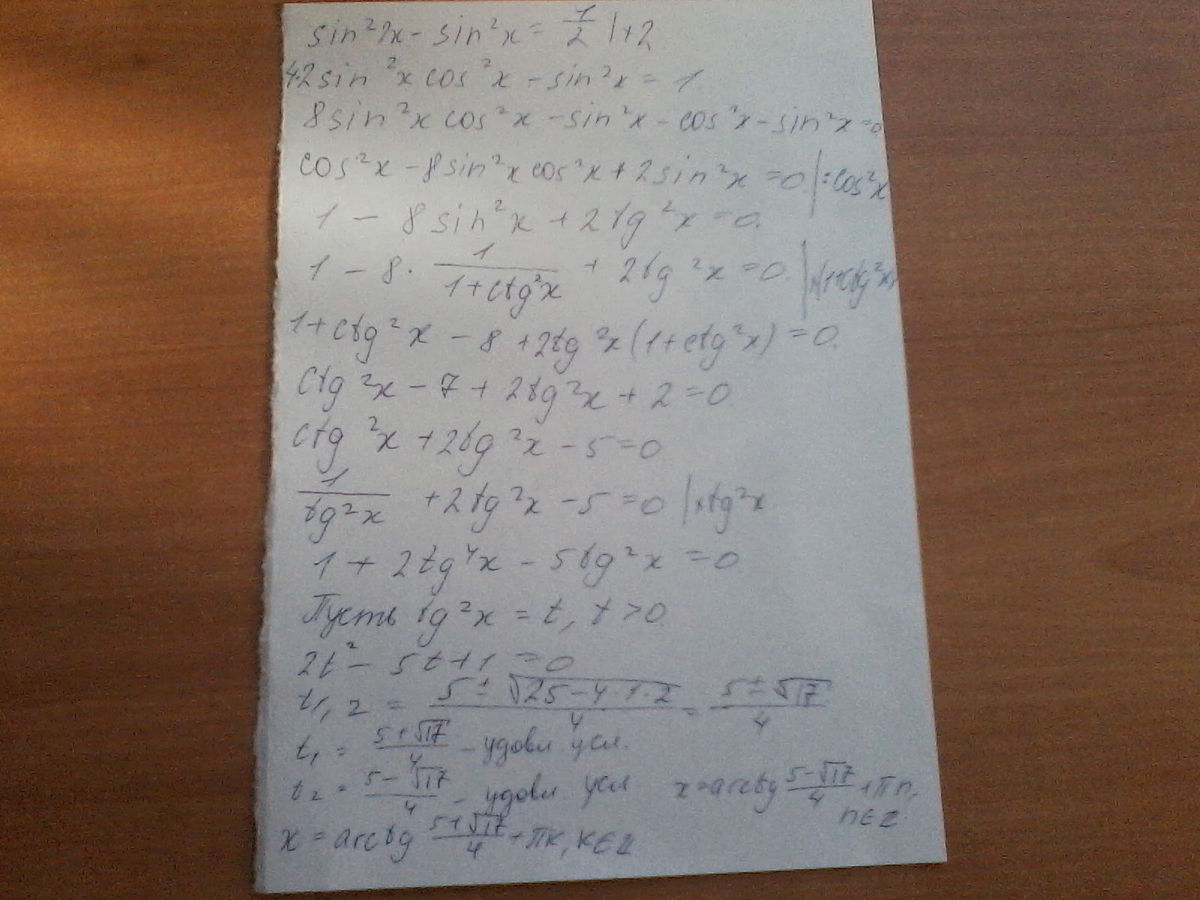 sin²2x - sin²x = 1/2 |+2
4·2sin²x cos²x - sin²x = 1
8sin²x cos²x - sin²x - cos²x - sin²x = 0
cos²x - 8sin²x cos²x + 2sin²x = 0 |:cos²x
1 - 8sin²x + 2tg²x = 0.
1 - 8 · 1/(1+ctg²x) + 2tg²x = 0. |×(1+ctg²x)
1 + ctg²x - 8 + 2tg²x(1+ctg²x) = 0.
ctg²x - 7 + 2tg²x + 2 = 0
ctg²x + 2tg²x - 5 = 0
1/tg²x + 2tg²x - 5 = 0 |×tg²x
1 + 2tg⁴x - 5tg²x = 0
Пусть tg²x = t, t > 0
2t² - 5t + 1 = 0
t₁,₂ = (5 ± √(25 - 4·1·2))/4 = (5 ± √17)/4
t₁ = (5+√17)/4 - удовл усл.
t₂ = (5-√17)/4 - удовл усл x = arctg (5-√17)/4 + πn, n∈Z
x = arctg (5+√17)/4 + πk, k∈Z